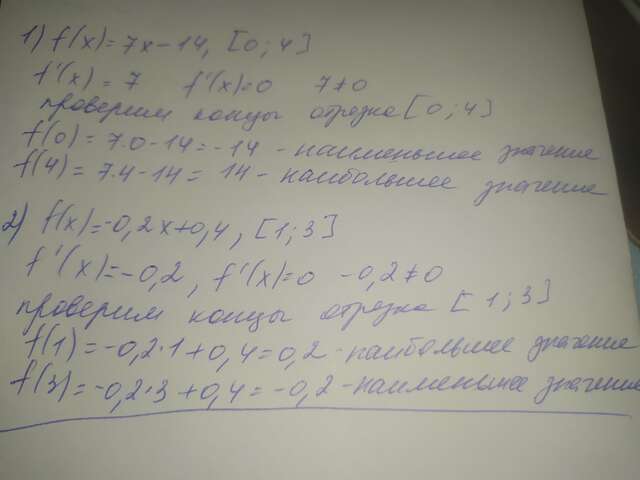 1) f(x)=7x-14, [0;4]
f'(x)=7 f'(x)=0 7≠0
проверим концы отрезка [0;4]
f(0)=7·0-14=-14 - наименьшее значение
f(4)=7·4-14=14 - наибольшее значение
2) f(x)=-0,2x+0,4, [1;3]
f'(x)=-0,2, f'(x)=0 -0,2≠0
проверим концы отрезка [1;3]
f(1)=-0,2·1+0,4=0,2-наибольшее значение
f(3)=-0,2·3+0,4=-0,2-наименьшее значение